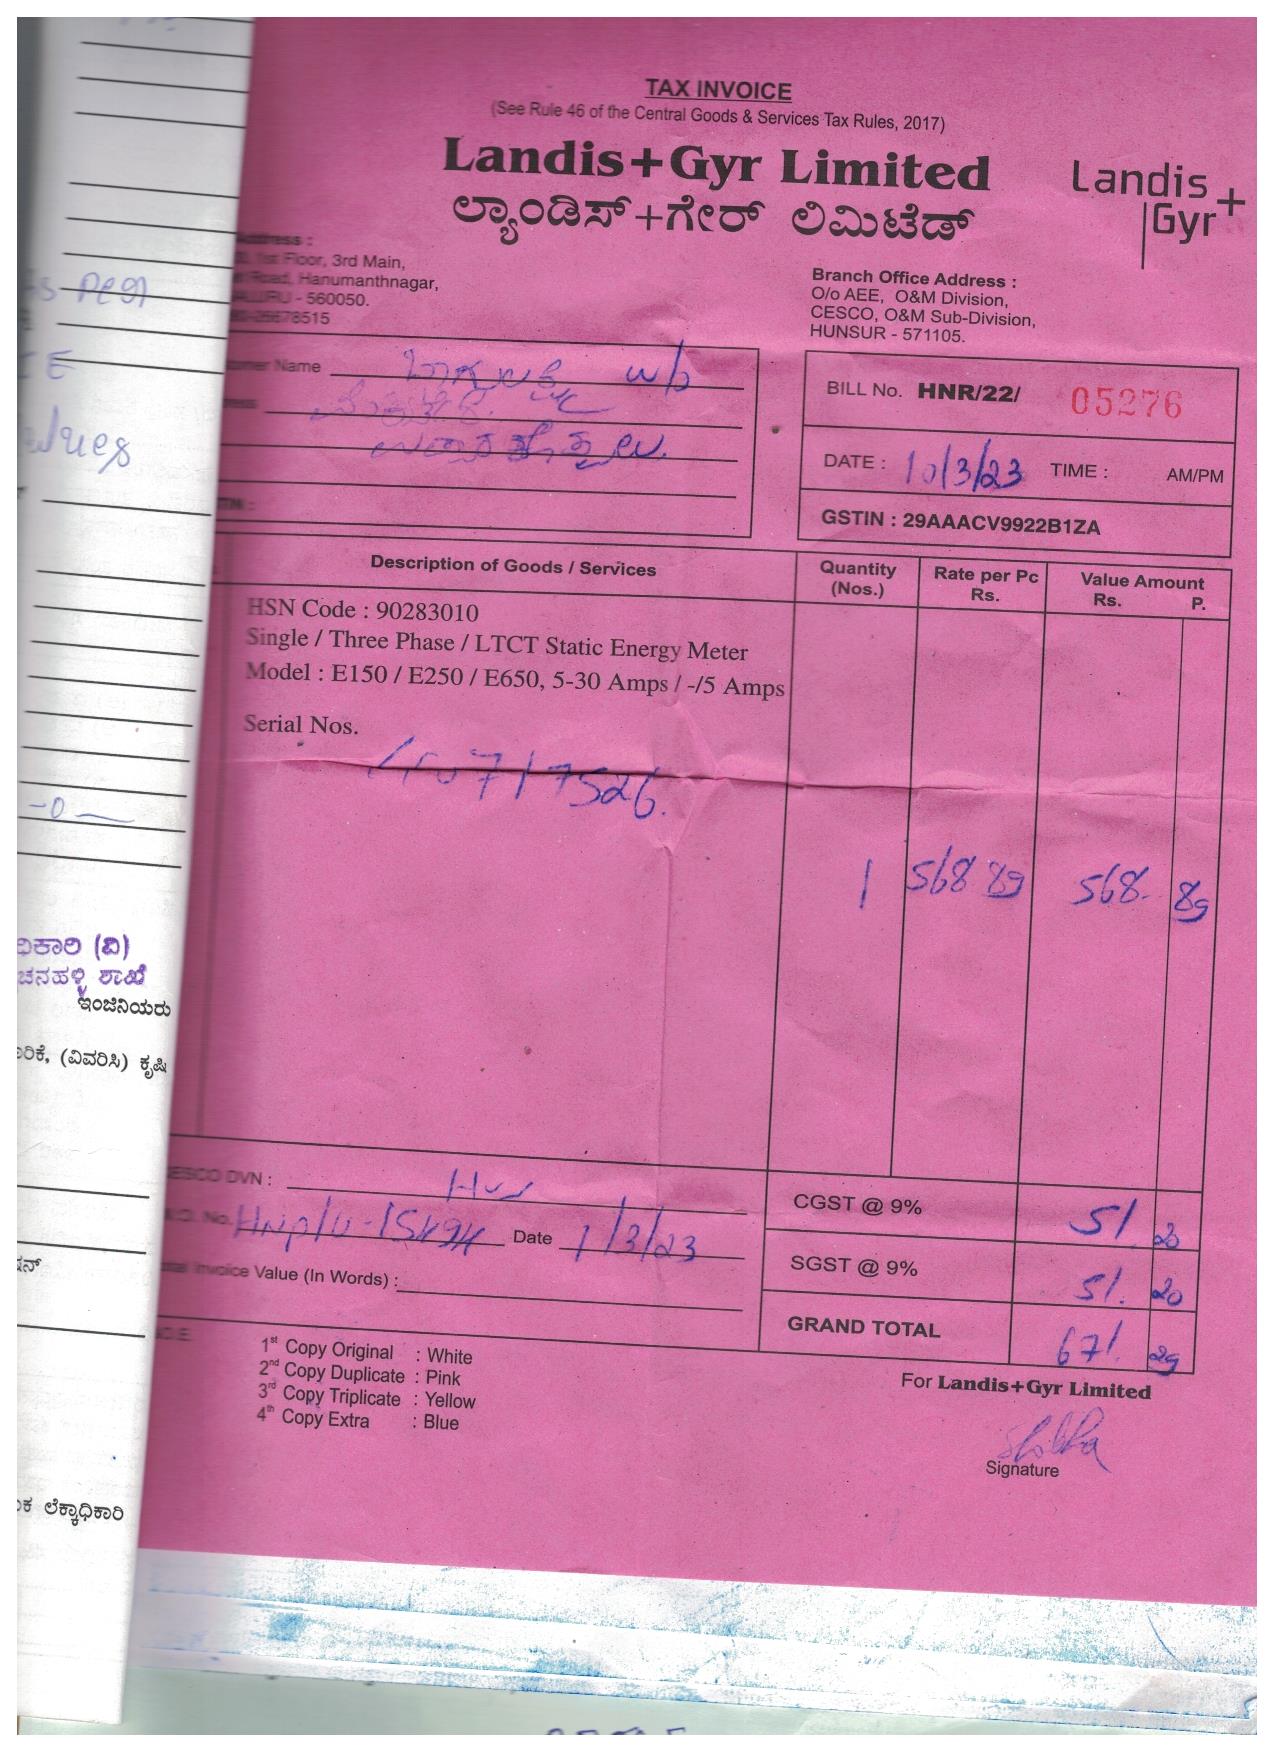 TAX INVOICE
(See Rule 46 of the Central Goods & Services Tax Rules, 2017)
Landis+Gyr Limited
ಲ್ಯಾಂಡಿಸ್+ಗೇರ್ ಲಿಮಿಟೆಡ್
Landis+
Gyr
Address :
1st Floor, 3rd Main,
Road, Hanumanthnagar,
- 560050.
Branch Office Address :
O/o AEE, O&M Division,
CESCO, O&M Sub-Division,
HUNSUR - 571105.
Name
w/o
BILL No. HNR/22/ 05276
DATE : 10/3/23 TIME : AM/PM
GSTIN : 29AAACV9922B1ZA
Description of Goods / Services
Quantity (Nos.)
Rate per Pc Rs.
Value Amount Rs. P.
HSN Code : 90283010
Single / Three Phase / LTCT Static Energy Meter
Model : E150 / E250 / E650, 5-30 Amps / -/5 Amps
Serial Nos.
1 568 89 568. 89
DVN :
CGST @ 9% 51. 20
No. Date 1/3/23
SGST @ 9% 51. 20
Invoice Value (In Words) :
GRAND TOTAL 671. 29
1st Copy Original : White
2nd Copy Duplicate : Pink
3rd Copy Triplicate : Yellow
4th Copy Extra : Blue
For Landis+Gyr Limited
Signature
(ವಿ)
ಶಾಖೆ
ಇಂಜಿನಿಯರು
(ವಿವರಿಸಿ) ಕೃಷಿ
ಲೆಕ್ಕಾಧಿಕಾರಿ